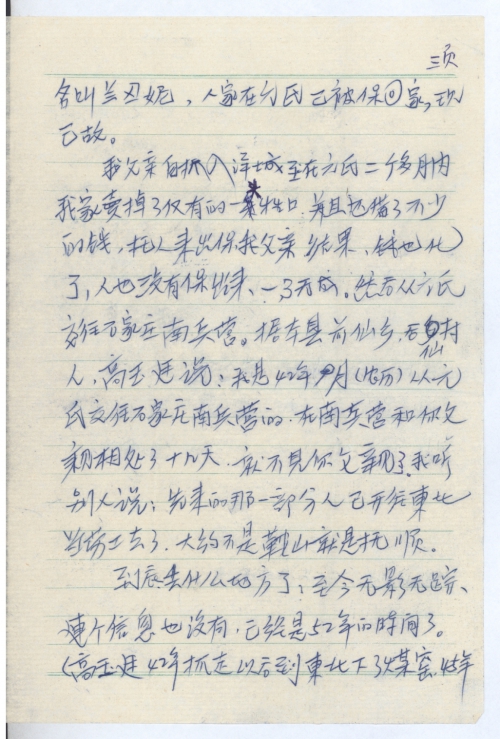 三页
名叫兰丑妮，人家在元氏已被保回家，现
已故。
我父亲自抓入泽城至在元氏二个多月内
我家卖掉了仅有的一头牲口，并且也借了不少
的钱，托人来出保我父亲，结果，钱也化
了，人也没有保出来，一了无成。然后从元氏
交往石家庄南兵营。据本县前仙乡，后仙村
人，高玉廷说：我是42年 月(农历)从元
氏交往石家庄南兵营的，在南兵营和你父
亲相处了十几天，就不见你父亲了，我听
别人说：先来的那一部分人已开往東北
当劳工去了，大约不是鞍山就是抚顺。
到底去什么地方了，至今无影无踪、
連个信息也没有，已经是52年的时间了。
(高玉廷42年抓走以后到東北下了煤窑，45年